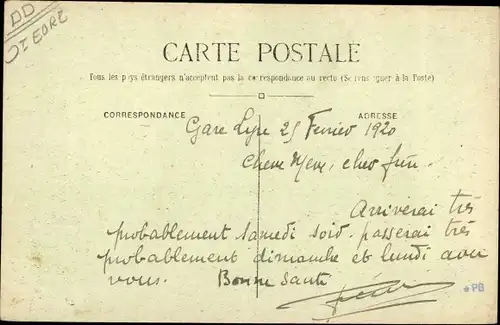 DD
CARTE POSTALE
Tous les pays étrangers n'acceptent pas la correspondance au recto (Se renseigner à la Poste)
CORRESPONDANCE
ADRESSE
Gare Lyre 25 Fevrier 1920
Chere Mere, cher
Arriverai très
probablement samedi soir. passerai très
probablement dimanche et lundi avec
vous. Bonne Santé
*PB